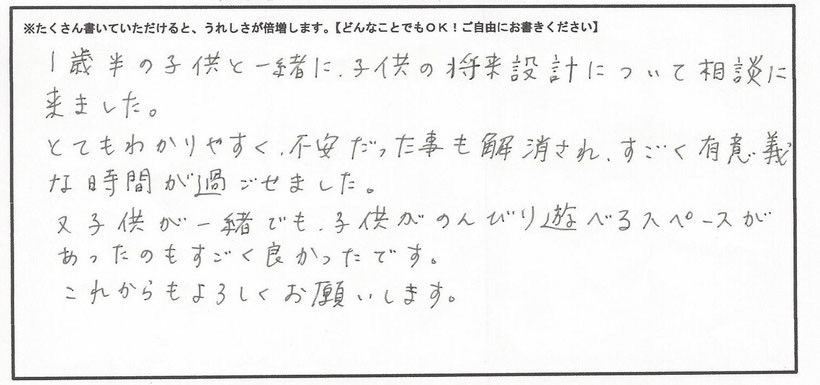 ※たくさん書いていただけると、うれしさが倍増します。【どんなことでもOK！ご自由にお書きください】
1歳半の子供と一緒に、子供の将来設計について相談に
来ました。
とてもわかりやすく、不安だった事も解消され、すごく有意義
な時間が過ごせました。
又子供が一緒でも、子供がのんびり遊べるスペースが
あったのもすごく良かったです。
これからもよろしくお願いします。